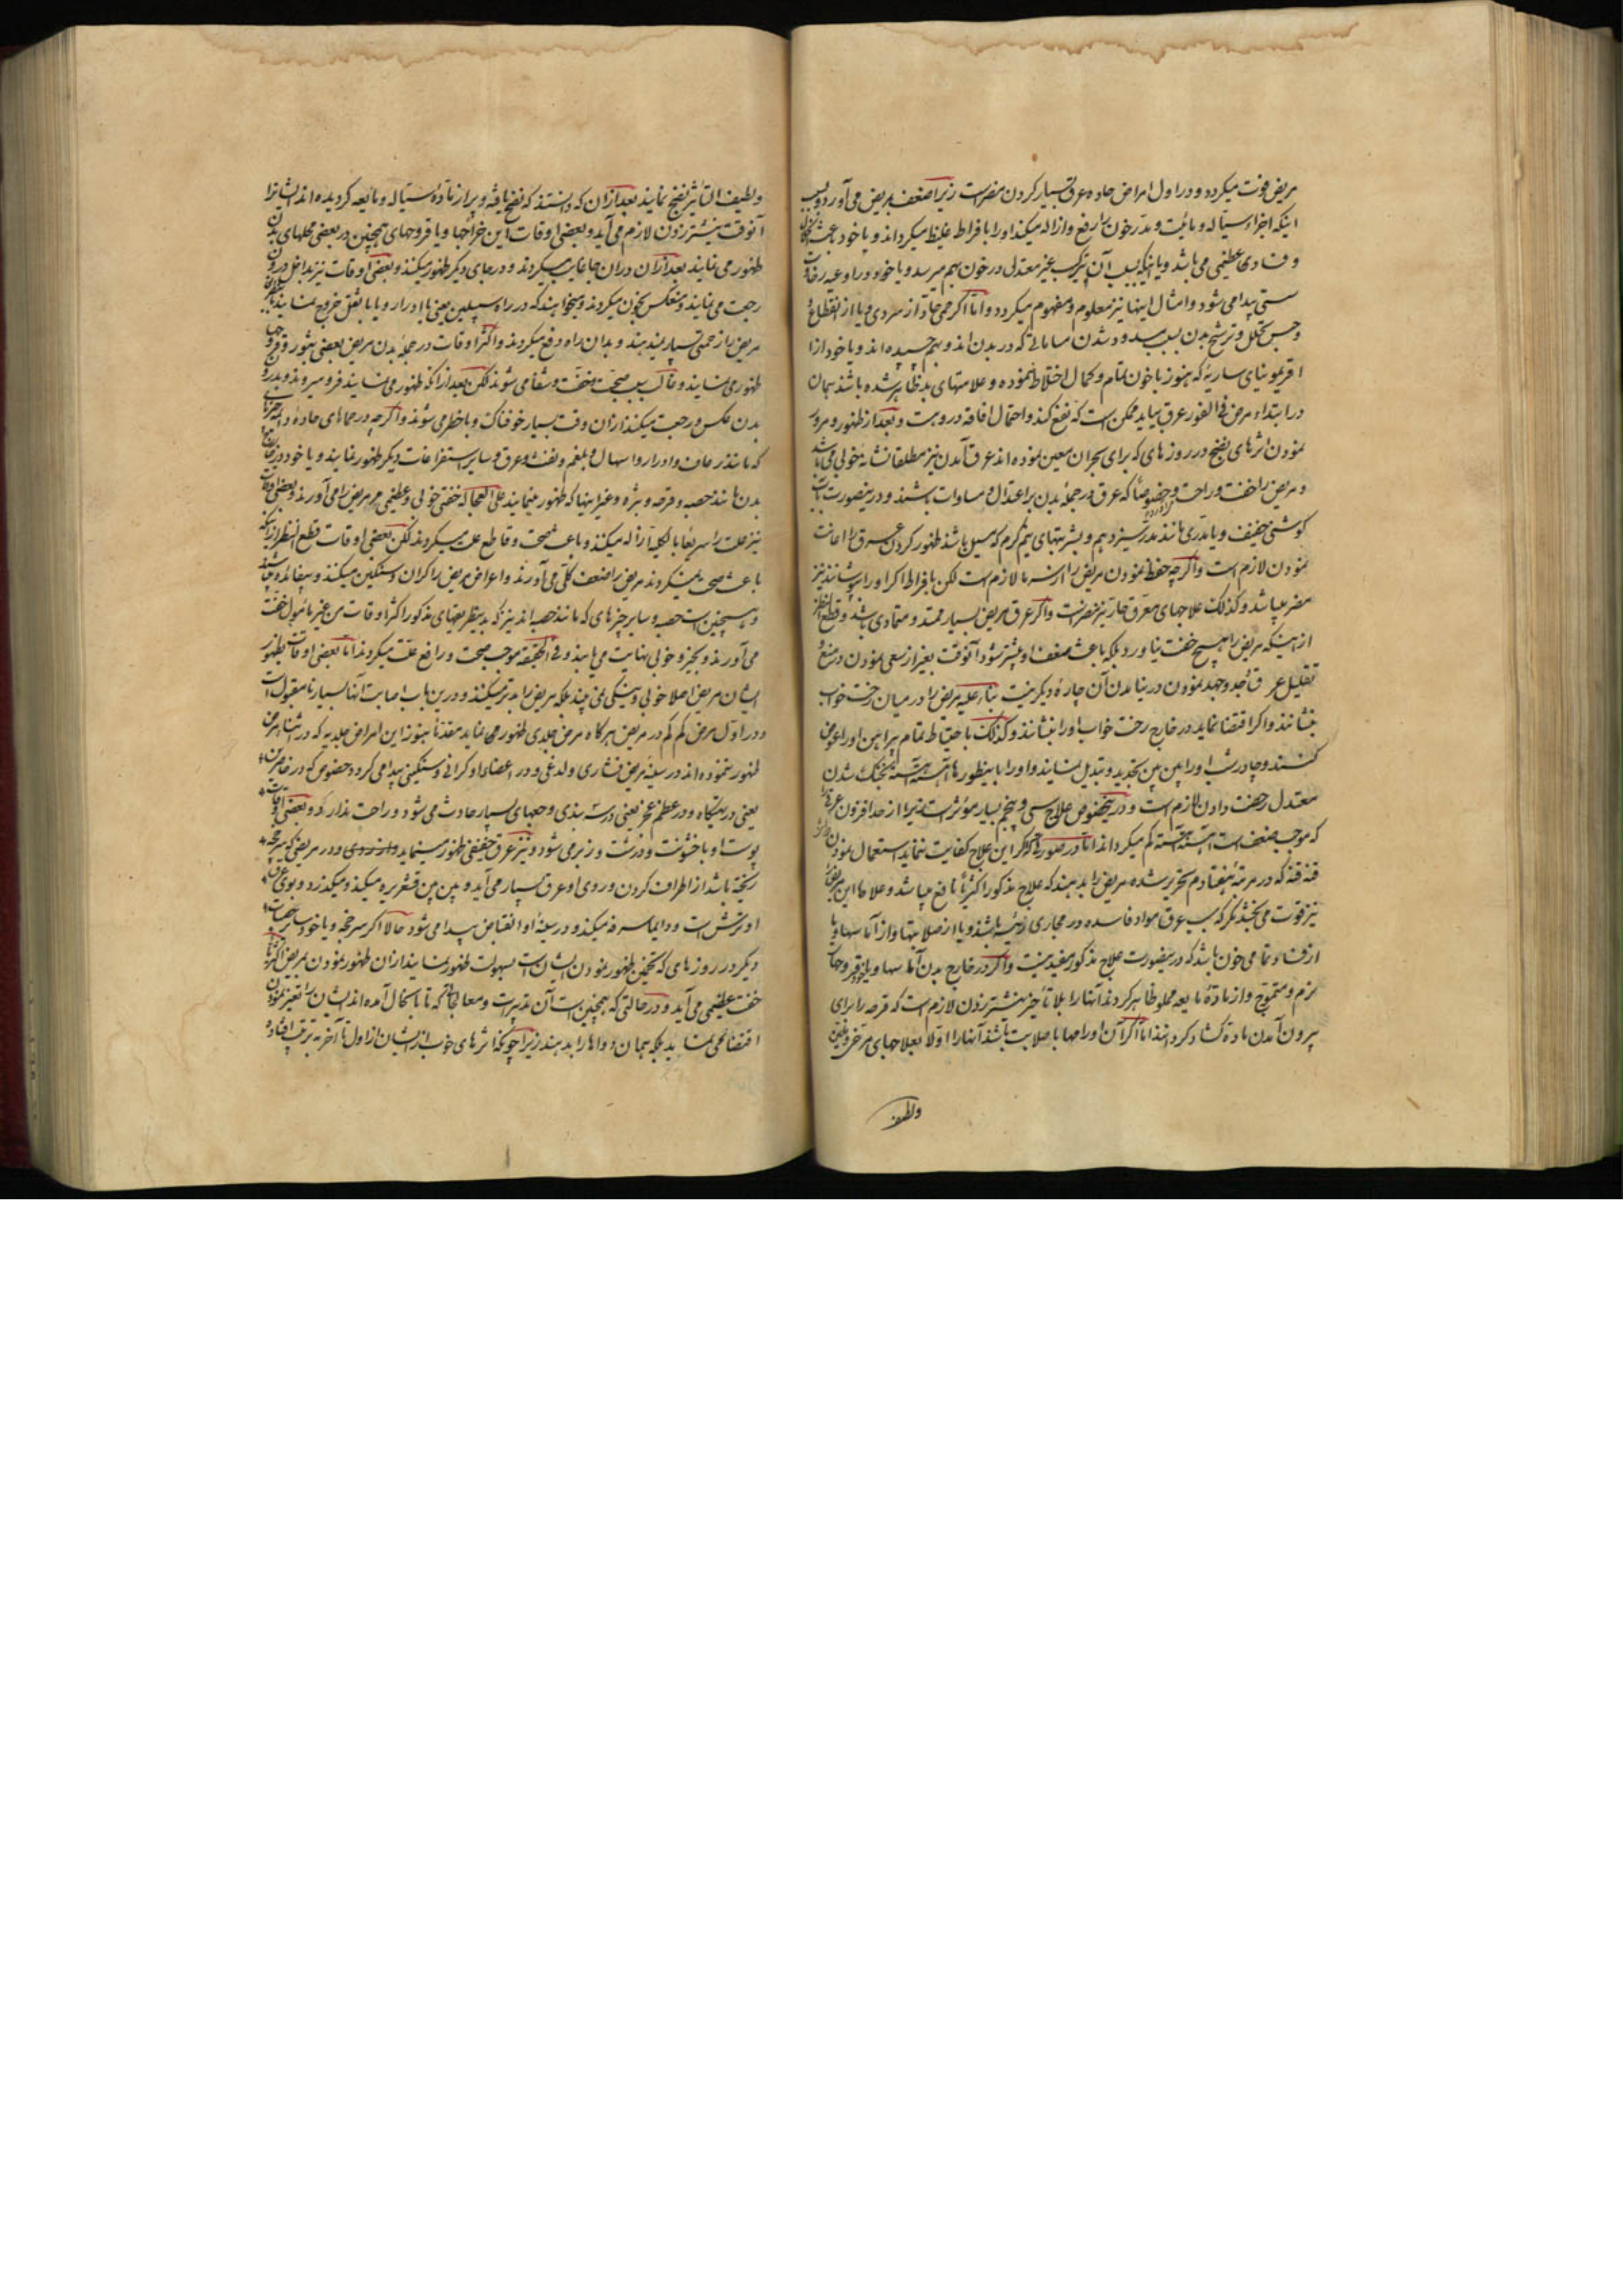 مریض فوت میکردد و در اول امراض حاده عرق بسیار کردن مضر است زیرا ضعف بمریض می آورد و بسبب
اینکه اجزاء سیّاله و مائیت و تدّ رخون را رفع و ازاله میکند او را با فراط غلیظ میکرداند و یا خود باعث
و فسادی عظیمی می باشد و یا اینکه بسبب آن ترکیب غیر معتدل در خون بهم میرسد و یا خود در اوعیه رخاوت
سستی پیدا می شود و امثال اینها نیز معلوم و مفهوم میکردد و امّا اکر حمی حادّ از سردی و یا از انقطاع
و حبس تحلل و ترشح بدن بسبب سدود شدن مساماتی که در بدن اند و بهم چسپیده اند و یا خود از
ساریه که هنوز با خون بتمام و کمال اختلاط ننموده و علامتهای بد ظاهر شده باشند همان
در ابتداء مرض فی الفور عرق بیاید ممکن است که نفع کند و احتمال افاقه درو هست و بعد از ظهور و مرور
نمودن اثرهای نضج در روزهای که برای بحران معین نموده اند عرق آمدن نیز مطلقا نشانهٔ خوبی می باشد
و مریض را خفت و راحت و خصوصاً که عرق در جملهٔ بدن بر اعتدال و مساوات باشند و درینصورت
کوششی خفیف و یا بتدّری مانند بدر سیزدهم و بشربتهای نیم کرم که مسهل باشد ظهور کردن عرق را اعانت
نمودن لازم است و اکرچه حفظ نمودن مریض را از سرما لازم است لکن با فراط اکر او را بپوشانند نیز
مضر میباشد و کذلک علاجهای معرّق حارّ نیز مضر است و اکر عرق مریض بسیار ممتد و متمادی باشد و قطع النظر
از اینکه مریض را هیچ خفت نیاورد بلکه باعث ضعف او بیشتر شود آنوقت بغیر از سعی نمودن در منع و
تقلیل عرق و جد و جهد نمودن در نیامدن آن چارهٔ دیکر نیست بناء علیه مریض را در میان رخت خواب
بنشانند و اکر اقتضا نماید در خارج رخت خواب او را بنشانند و کذلک با احتیاط تمام پیراهن او را عوض
کنند و چادر شب او را پین پین تجدید و تبدیل نمایند و او را با بینطورها آهسته آهسته بخنک شدن
معتدل رخصت دادن لازم است و درینخصوص علاج سی و پنجم بسیار مؤثر است زیرا از حد افزون عرق را
که موجب ضعف است آهسته آهسته کم میکرداند امّا در صورتی که اکر این علاج کفایت ننماید استعمال نمودن
قنه قنه که در مرتبهٔ هفتادم تحریر شده مریض را بدهند که علاج مذکور اکثریّاً نافع میباشد و علاجها این مریض را
نیز قوت می بخشد مکر که سبب عرق مواد فاسده در مجاری رئیه باشند و یا از صلابتها و از آماسها و یا
از فساد تمامی خون باشد که درینصورت علاج مذکور مفید نیست و اکر در خارج بدن آماسها و یا خود قروحات
نرم و متموّج و از مادّهٔ مایعه مملو ظاهر کردند آنها را بلا تأخیر نیشتر زدن لازم است که قرحه را برای
بیرون آمدن مادّه کشاد کردانند امّا اکر آن اورامها با صلابت باشند آنها را اوّلا بعلاجهای مرخی و ملین
ولطیف
ولطیف التأثیر نضج نمایند بعد از آن که دانستند که نضج یافته و پر از مادّهٔ سیّاله و مائعه کردیده اند ایشانرا
آنوقت نیشتر زدن لازم می آید و بعضی اوقات این خراجها و یا قروحهای همچنین در بعضی محلهای بدن
ظهور می نمایند بعد از آن در آن جا غایب میکردند و در جای دیکر ظهور میکنند و بعضی اوقات نیز بداخل درون
رجعت می نمایند و منعکس بخون میکردند و میخواهند که در راه سبیلین یعنی با ادرار و یا با ثفل خروج نمایند
مریض را زحمتی بسیار میدهند و بدان راه دفع میکردند و اکثر اوقات در جملهٔ بدن مریض بعضی بثور و قروحها
ظهور می نمایند و غالباً سبب صحّت و خفّت و شفا می شوند لکن بعد از آنکه ظهور می نمایند فرو میروند و بدرون
بدن عکس و رجعت میکنند از آن وقت بسیار خوفناک و با خطر می شوند و اکرچه در حماهای حاده دائمه چیزهای
که مانند رعاف و ادرار و اسهال و بلغم و نفث و عرق و سایر استفراغات دیکر ظهور نمایند و یا خود در خارج
بدن مانند حصبه و قرحه و بثره و غیر اینها که ظهور مینمایند علی العجاله خفتی خوبی و عظیمی مر مریض را می آورند و بعضی اوقات
نیز علت را سریعاً بالکلیه ازاله میکنند و باعث صحّت و قاطع علت میکردند لکن بعضی اوقات قطع النظر از آنکه
باعث صحّت نمیکردند مریض را ضعف کلّی می آورند و اعراض مریض را کران و سنکین میکنند و بیفایده میباشند
و همچنین است حصبه و سایر چیزهای که مانند حصبه اند نیز که بدینطریقهای مذکور اکثر اوقات من غیر مأمول خفّت
می آورند و بخیر و خوبی نهایت می یابند و فی الحقیقه موجب صحّت و رافع علّت میکردند امّا بعضی اوقات بظهور
ایشان مریض اصلا خوبی و نیکی نمی بیند بلکه مریض را بدتر میکنند و درین باب اصابت آنها بسیار نامقبول است
و در اوّل مرض کم کم در مریض هرکاه مرض جلدی ظهور می نماید مقدّماً هنوز این امراض جلدیه که در اثناء مرض
ظهور ننموده اند در سینهٔ مریض فشاری و لدغی و در اعضاء او کرانی و سنکینی پیدا می کردد خصوص که در خاصرهٔ من
یعنی در تهیکاه و در عظم عجز یعنی درشت بندی وجعهای بسیار حادث می شود و راحت ندارد و بعضی اوقات
پوست او با خشونت و درشت و زبر می شود و نیز عرق خفیفی ظهور مینماید و در مریضی که سرخجه
ریخته باشد از اطراف کردن و روی او عرق بسیار می آید و پین پین قشعریره میکند و میکذرد و بوی عرق
او ترش است و دائما سرفه میکند و در سینهٔ او انقباض پیدا می شود حالا اکر سرخجه و یا خود سایر حصبات
دیکر در روزهای که تخمین ظهور نمودن ایشان است بسهولت ظهور نمایند از آن ظهور نمودن بمریض اکثریّاً
خفت عظیمی می آید و در حالتی که همچنین است آن تدبیرات و معالجاتی که تا باینحال آمده اند ایشان را تغییر نمودن
اقتضا نمی نماید بلکه همان دواها را بدهند زیرا چونکه اثرهای خوب از ایشان از اول تا آخر به ترتیب افتاده